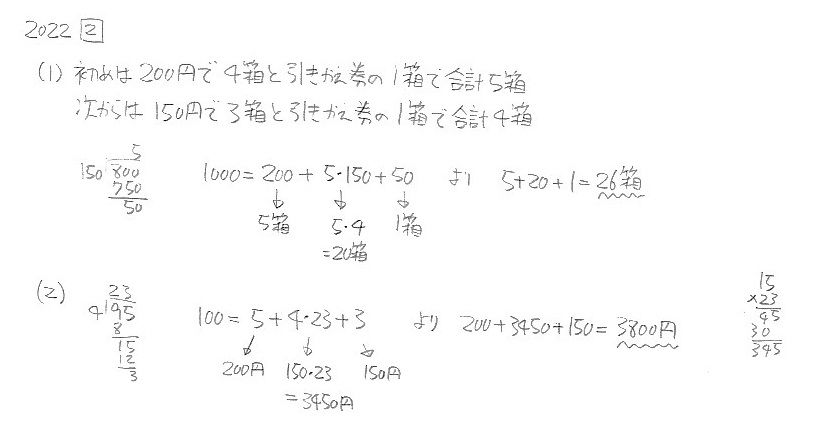 2022 ②
(1) 初めは200円で4箱と引きかえ券の1箱で合計5箱
次からは150円で3箱と引きかえ券の1箱で合計4箱
5
150 800
750
50
1000 = 200 + 5・150 + 50 より 5+20+1=26箱
↓ ↓ ↓
5箱 5・4 1箱
=20箱
(2)
23
4 95
8
15
12
3
100 = 5 + 4・23 + 3 より 200+3450+150=3800円
↓ ↓ ↓
200円 150・23 150円
=3450円
15
×23
45
30
345